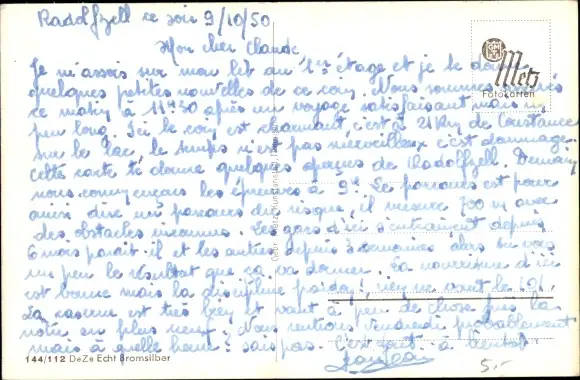 Radolfzell ce soir 9/10/50
Mon cher Claude
Je m'assois sur mon lit au 1er étage et je te donne
quelques petites nouvelles de ce coin. Nous sommes arrivés
ce matin à 11h30 après un voyage satisfaisant mais un
peu long. Ici le coin est charmant c'est à 21 Km de Constance
sur le lac, le temps n'est pas merveilleux c'est dommage.
Cette carte te donne quelques aperçus de Radolfzell. Demain
nous commençons les épreuves à 9h. Le parcours est pour
ainsi dire un parcours du risque, il mesure 700 m avec
des obstacles inconnus. Les gars d'ici s'entrainent depuis
6 mois parait il et les autres depuis 3 semaines alors tu vois
un peu le résultat que ça va donner. La nourriture d'ici
est bonne mais la discipline pardon! rien ne vaut le
La caserne est très bien et vaut à peu de chose près la
notre en plus neuf. Nous rentrons Vendredi probablement
mais à quelle heure? sais pas. C'est tout à bientôt
Jean
5.-
Metz
Fotokarten
144/112 DeZe Echt Bromsilber